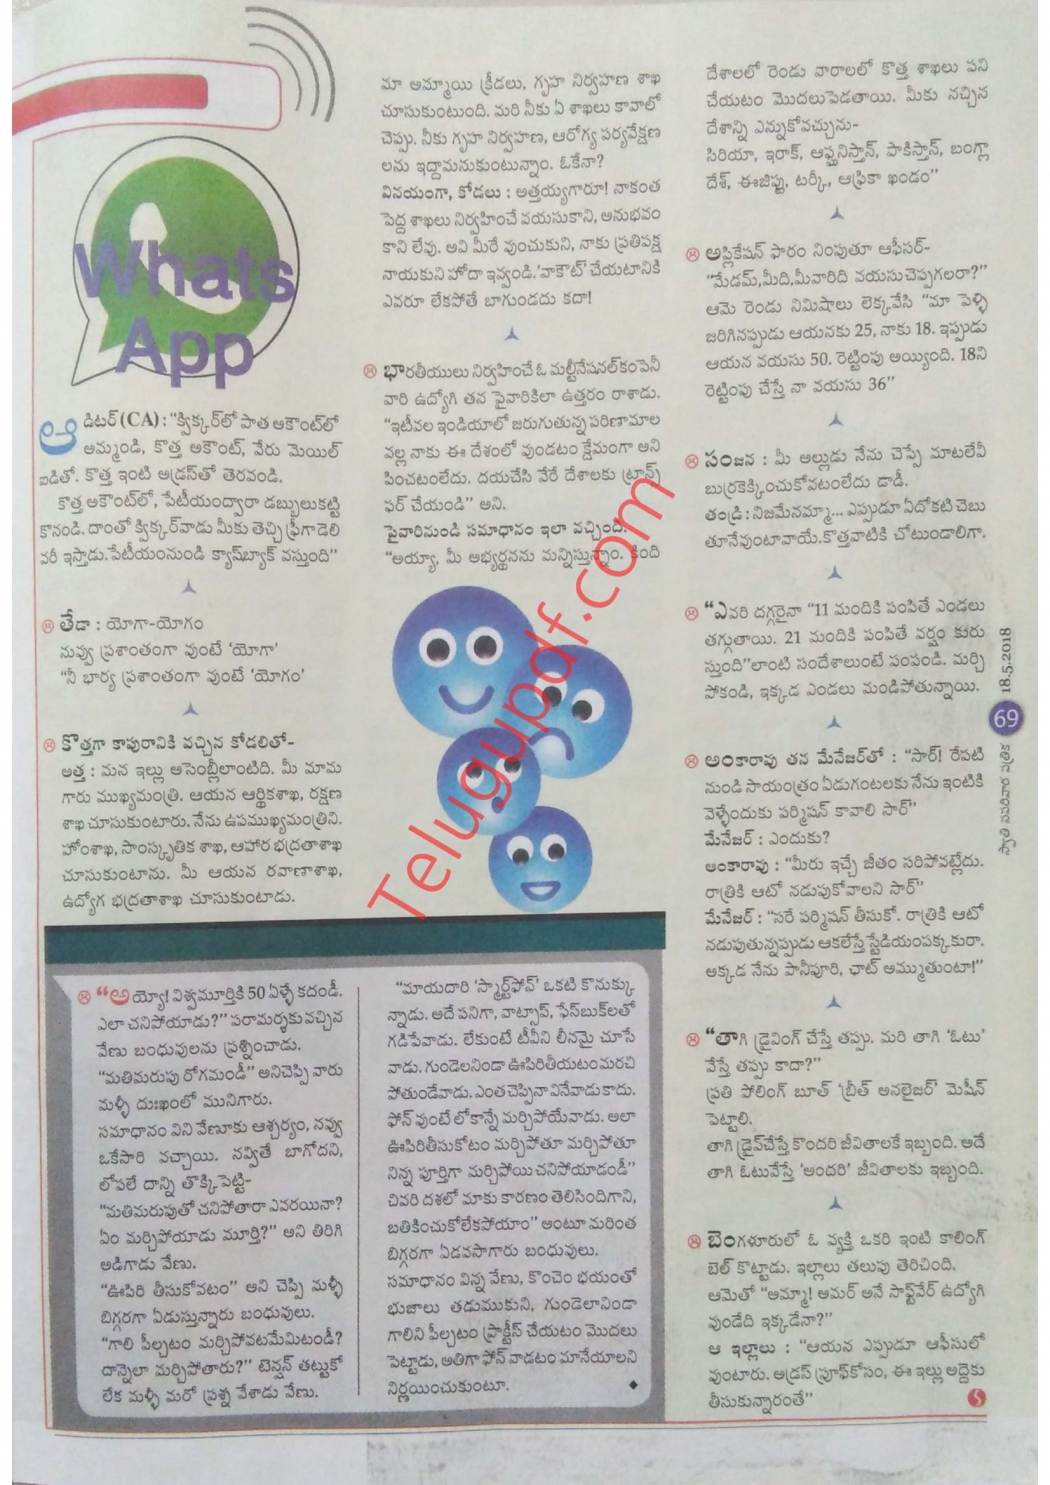 Whats
App
ఆడిటర్ (CA) : "క్విక్కర్‌లో పాత అకౌంట్‌లో
అమ్మండి, కొత్త అకౌంట్, వేరు మెయిల్
ఐడితో. కొత్త ఇంటి అడ్రస్‌తో తెరవండి.
కొత్త అకౌంట్‌లో, పేటీయంద్వారా డబ్బులుకట్టి
కొనండి. దాంతో క్విక్కర్‌వాడు మీకు తెచ్చి ఫ్రీగాడెలి
వరీ ఇస్తాడు. పేటీయంనుండి క్యాష్‌బ్యాక్ వస్తుంది"
తేడా : యోగా-యోగం
నువ్వు ప్రశాంతంగా వుంటే 'యోగా'
"నీ భార్య ప్రశాంతంగా వుంటే 'యోగం'
కొత్తగా కాపురానికి వచ్చిన కోడలితో-
అత్త : మన ఇల్లు అసెంబ్లీలాంటిది. మీ మామ
గారు ముఖ్యమంత్రి. ఆయన ఆర్థికశాఖ, రక్షణ
శాఖ చూసుకుంటారు. నేను ఉపముఖ్యమంత్రిని.
హోంశాఖ, సాంస్కృతిక శాఖ, ఆహార భద్రతాశాఖ
చూసుకుంటాను. మీ ఆయన రవాణాశాఖ,
ఉద్యోగ భద్రతాశాఖ చూసుకుంటాడు.
మా అమ్మాయి క్రీడలు, గృహ నిర్వహణ శాఖ
చూసుకుంటుంది. మరి నీకు ఏ శాఖలు కావాలో
చెప్పు. నీకు గృహ నిర్వహణ, ఆరోగ్య పర్యవేక్షణ
లను ఇద్దామనుకుంటున్నాం. ఓకేనా?
వినయంగా, కోడలు : అత్తయ్యగారూ! నాకంత
పెద్ద శాఖలు నిర్వహించే వయసుకాని, అనుభవం
కాని లేవు. అవి మీరే వుంచుకుని, నాకు ప్రతిపక్ష
నాయకుని హోదా ఇవ్వండి. 'వాకౌట్' చేయటానికి
ఎవరూ లేకపోతే బాగుండదు కదా!
భారతీయులు నిర్వహించే ఓ మల్టీనేషనల్‌కంపెనీ
వారి ఉద్యోగి తన పైవారికిలా ఉత్తరం రాశాడు.
"ఇటీవల ఇండియాలో జరుగుతున్న పరిణామాల
వల్ల నాకు ఈ దేశంలో వుండటం క్షేమంగా అని
పించటంలేదు. దయచేసి వేరే దేశాలకు ట్రాన్స్
ఫర్ చేయండి" అని.
పైవారినుండి సమాధానం ఇలా వచ్చింది.
"అయ్యా, మీ అభ్యర్థనను మన్నిస్తున్నాం. కింది
దేశాలలో రెండు వారాలలో కొత్త శాఖలు పని
చేయటం మొదలుపెడతాయి. మీకు నచ్చిన
దేశాన్ని ఎన్నుకోవచ్చును-
సిరియా, ఇరాక్, ఆఫ్ఘనిస్తాన్, పాకిస్తాన్, బంగ్లా
దేశ్, ఈజిప్టు, టర్కీ, ఆఫ్రికా ఖండం"
అప్లికేషన్ ఫారం నింపుతూ ఆఫీసర్-
"మేడమ్, మీది, మీవారిది వయసు చెప్పగలరా?"
ఆమె రెండు నిమిషాలు లెక్కవేసి "మా పెళ్ళి
జరిగినప్పుడు ఆయనకు 25, నాకు 18. ఇప్పుడు
ఆయన వయసు 50. రెట్టింపు అయ్యింది. 18ని
రెట్టింపు చేస్తే నా వయసు 36"
సంజన : మీ అల్లుడు నేను చెప్పే మాటలేవీ
బుర్రకెక్కించుకోవటంలేదు డాడీ.
తండ్రి : నిజమేనమ్మా... ఎప్పుడూ ఏదోకటి చెబు
తూనేవుంటావాయే. కొత్తవాటికి చోటుండాలిగా.
"ఎవరి దగ్గరైనా "11 మందికి పంపితే ఎండలు
తగ్గుతాయి. 21 మందికి పంపితే వర్షం కురు
స్తుంది"లాంటి సందేశాలుంటే పంపండి. మర్చి
పోకండి, ఇక్కడ ఎండలు మండిపోతున్నాయి.
అంకారావు తన మేనేజర్‌తో : "సార్! రేపటి
నుండి సాయంత్రం ఏడుగంటలకు నేను ఇంటికి
వెళ్ళేందుకు పర్మిషన్ కావాలి సార్"
మేనేజర్ : ఎందుకు?
అంకారావు : "మీరు ఇచ్చే జీతం సరిపోవట్లేదు.
రాత్రికి ఆటో నడుపుకోవాలని సార్"
మేనేజర్ : "సరే పర్మిషన్ తీసుకో. రాత్రికి ఆటో
నడుపుతున్నప్పుడు ఆకలేస్తే స్టేడియంపక్కకురా.
అక్కడ నేను పానీపూరి, ఛాట్ అమ్ముతుంటా!"
"తాగి డ్రైవింగ్ చేస్తే తప్పు. మరి తాగి 'ఓటు'
వేస్తే తప్పు కాదా?"
ప్రతి పోలింగ్ బూత్ 'బ్రీత్ అనలైజర్' మెషీన్
పెట్టాలి.
తాగి డ్రైవ్‌చేస్తే కొందరి జీవితాలకే ఇబ్బంది. అదే
తాగి ఓటువేస్తే 'అందరి' జీవితాలకు ఇబ్బంది.
బెంగళూరులో ఓ వ్యక్తి ఒకరి ఇంటి కాలింగ్
బెల్ కొట్టాడు. ఇల్లాలు తలుపు తెరిచింది.
ఆమెతో "అమ్మా! అమర్ అనే సాఫ్ట్‌వేర్ ఉద్యోగి
వుండేది ఇక్కడేనా?"
ఆ ఇల్లాలు : "ఆయన ఎప్పుడూ ఆఫీసులో
వుంటారు. అడ్రస్ ప్రూఫ్‌కోసం, ఈ ఇల్లు అద్దెకు
తీసుకున్నారంతే"
"అయ్యో! విశ్వమూర్తికి 50 ఏళ్ళే కదండీ.
ఎలా చనిపోయాడు?" పరామర్శకువచ్చిన
వేణు బంధువులను ప్రశ్నించాడు.
"మతిమరుపు రోగమండీ" అనిచెప్పి వారు
మళ్ళీ దుఃఖంలో మునిగారు.
సమాధానం విని వేణూకు ఆశ్చర్యం, నవ్వు
ఒకేసారి వచ్చాయి. నవ్వితే బాగోదని,
లోపలే దాన్ని తొక్కిపెట్టి-
"మతిమరుపుతో చనిపోతారా ఎవరయినా?
ఏం మర్చిపోయాడు మూర్తి?" అని తిరిగి
అడిగాడు వేణు.
"ఊపిరి తీసుకోవటం" అని చెప్పి మళ్ళీ
బిగ్గరగా ఏడుస్తున్నారు బంధువులు.
"గాలి పీల్చటం మర్చిపోవటమేమిటండీ?
దాన్నెలా మర్చిపోతారు?" టెన్షన్ తట్టుకో
లేక మళ్ళీ మరో ప్రశ్న వేశాడు వేణు.
"మాయదారి 'స్మార్ట్‌ఫోన్' ఒకటి కొనుక్కు
న్నాడు. అదే పనిగా, వాట్సాప్, ఫేస్‌బుక్‌లతో
గడిపేవాడు. లేకుంటే టీవీని లీనమై చూసే
వాడు. గుండెలనిండా ఊపిరితీయటంమరచి
పోతుండేవాడు. ఎంతచెప్పినా వినేవాడుకాదు.
ఫోన్ వుంటే లోకాన్నే మర్చిపోయేవాడు. అలా
ఊపిరితీసుకోటం మర్చిపోతూ మర్చిపోతూ
నిన్న పూర్తిగా మర్చిపోయి చనిపోయాడండీ"
చివరి దశలో మాకు కారణం తెలిసిందిగాని,
బతికించుకోలేకపోయాం" అంటూ మరింత
బిగ్గరగా ఏడవసాగారు బంధువులు.
సమాధానం విన్న వేణు, కొంచెం భయంతో
భుజాలు తడుముకుని, గుండెలానిండా
గాలిని పీల్చటం ప్రాక్టీస్ చేయటం మొదలు
పెట్టాడు, అతిగా ఫోన్ వాడటం మానేయాలని
నిర్ణయించుకుంటూ.
18.5.2018
69
స్వాతి సపరివార పత్రిక
Telugupdf.com